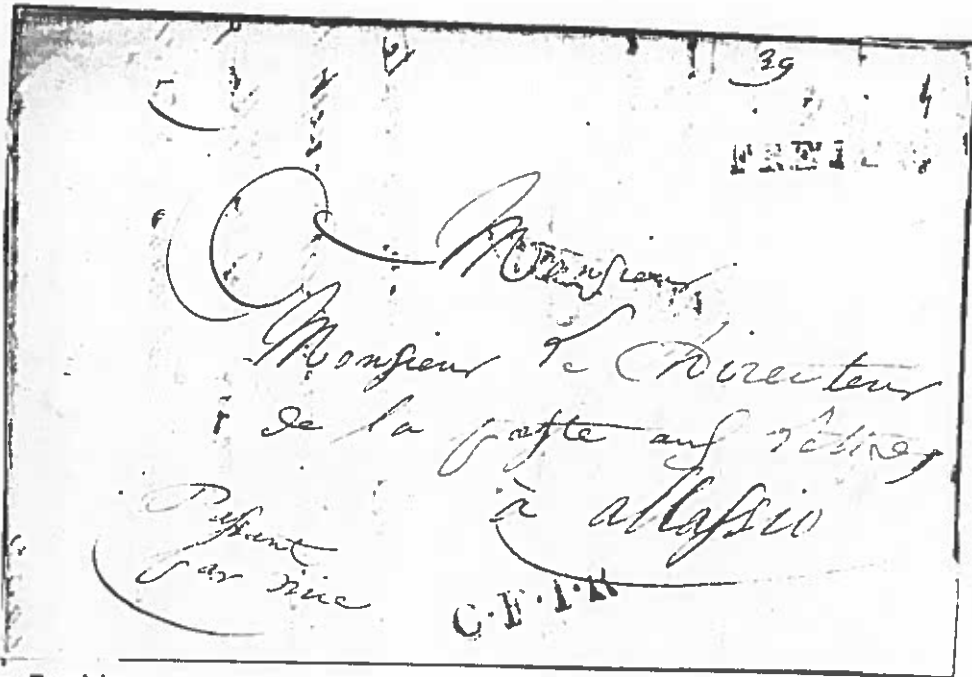 39
4
Monsieur
Monsieur le Directeur
de la poste aux lettres
à allassio
Passant
par nice
C.F.1.R